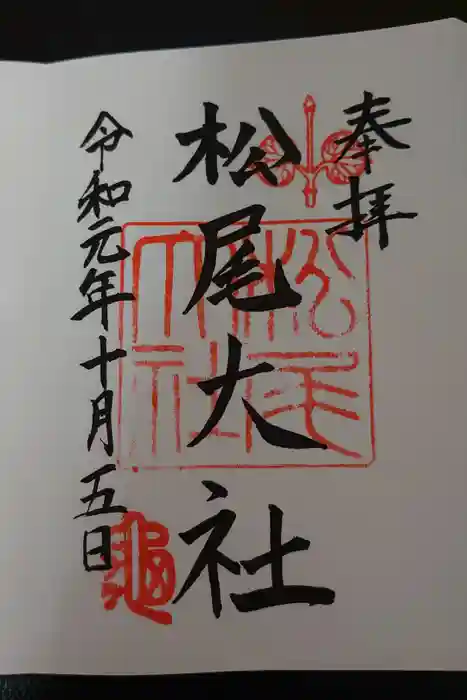 奉拝
松尾大社
松尾大社
令和元年十月五日
龜